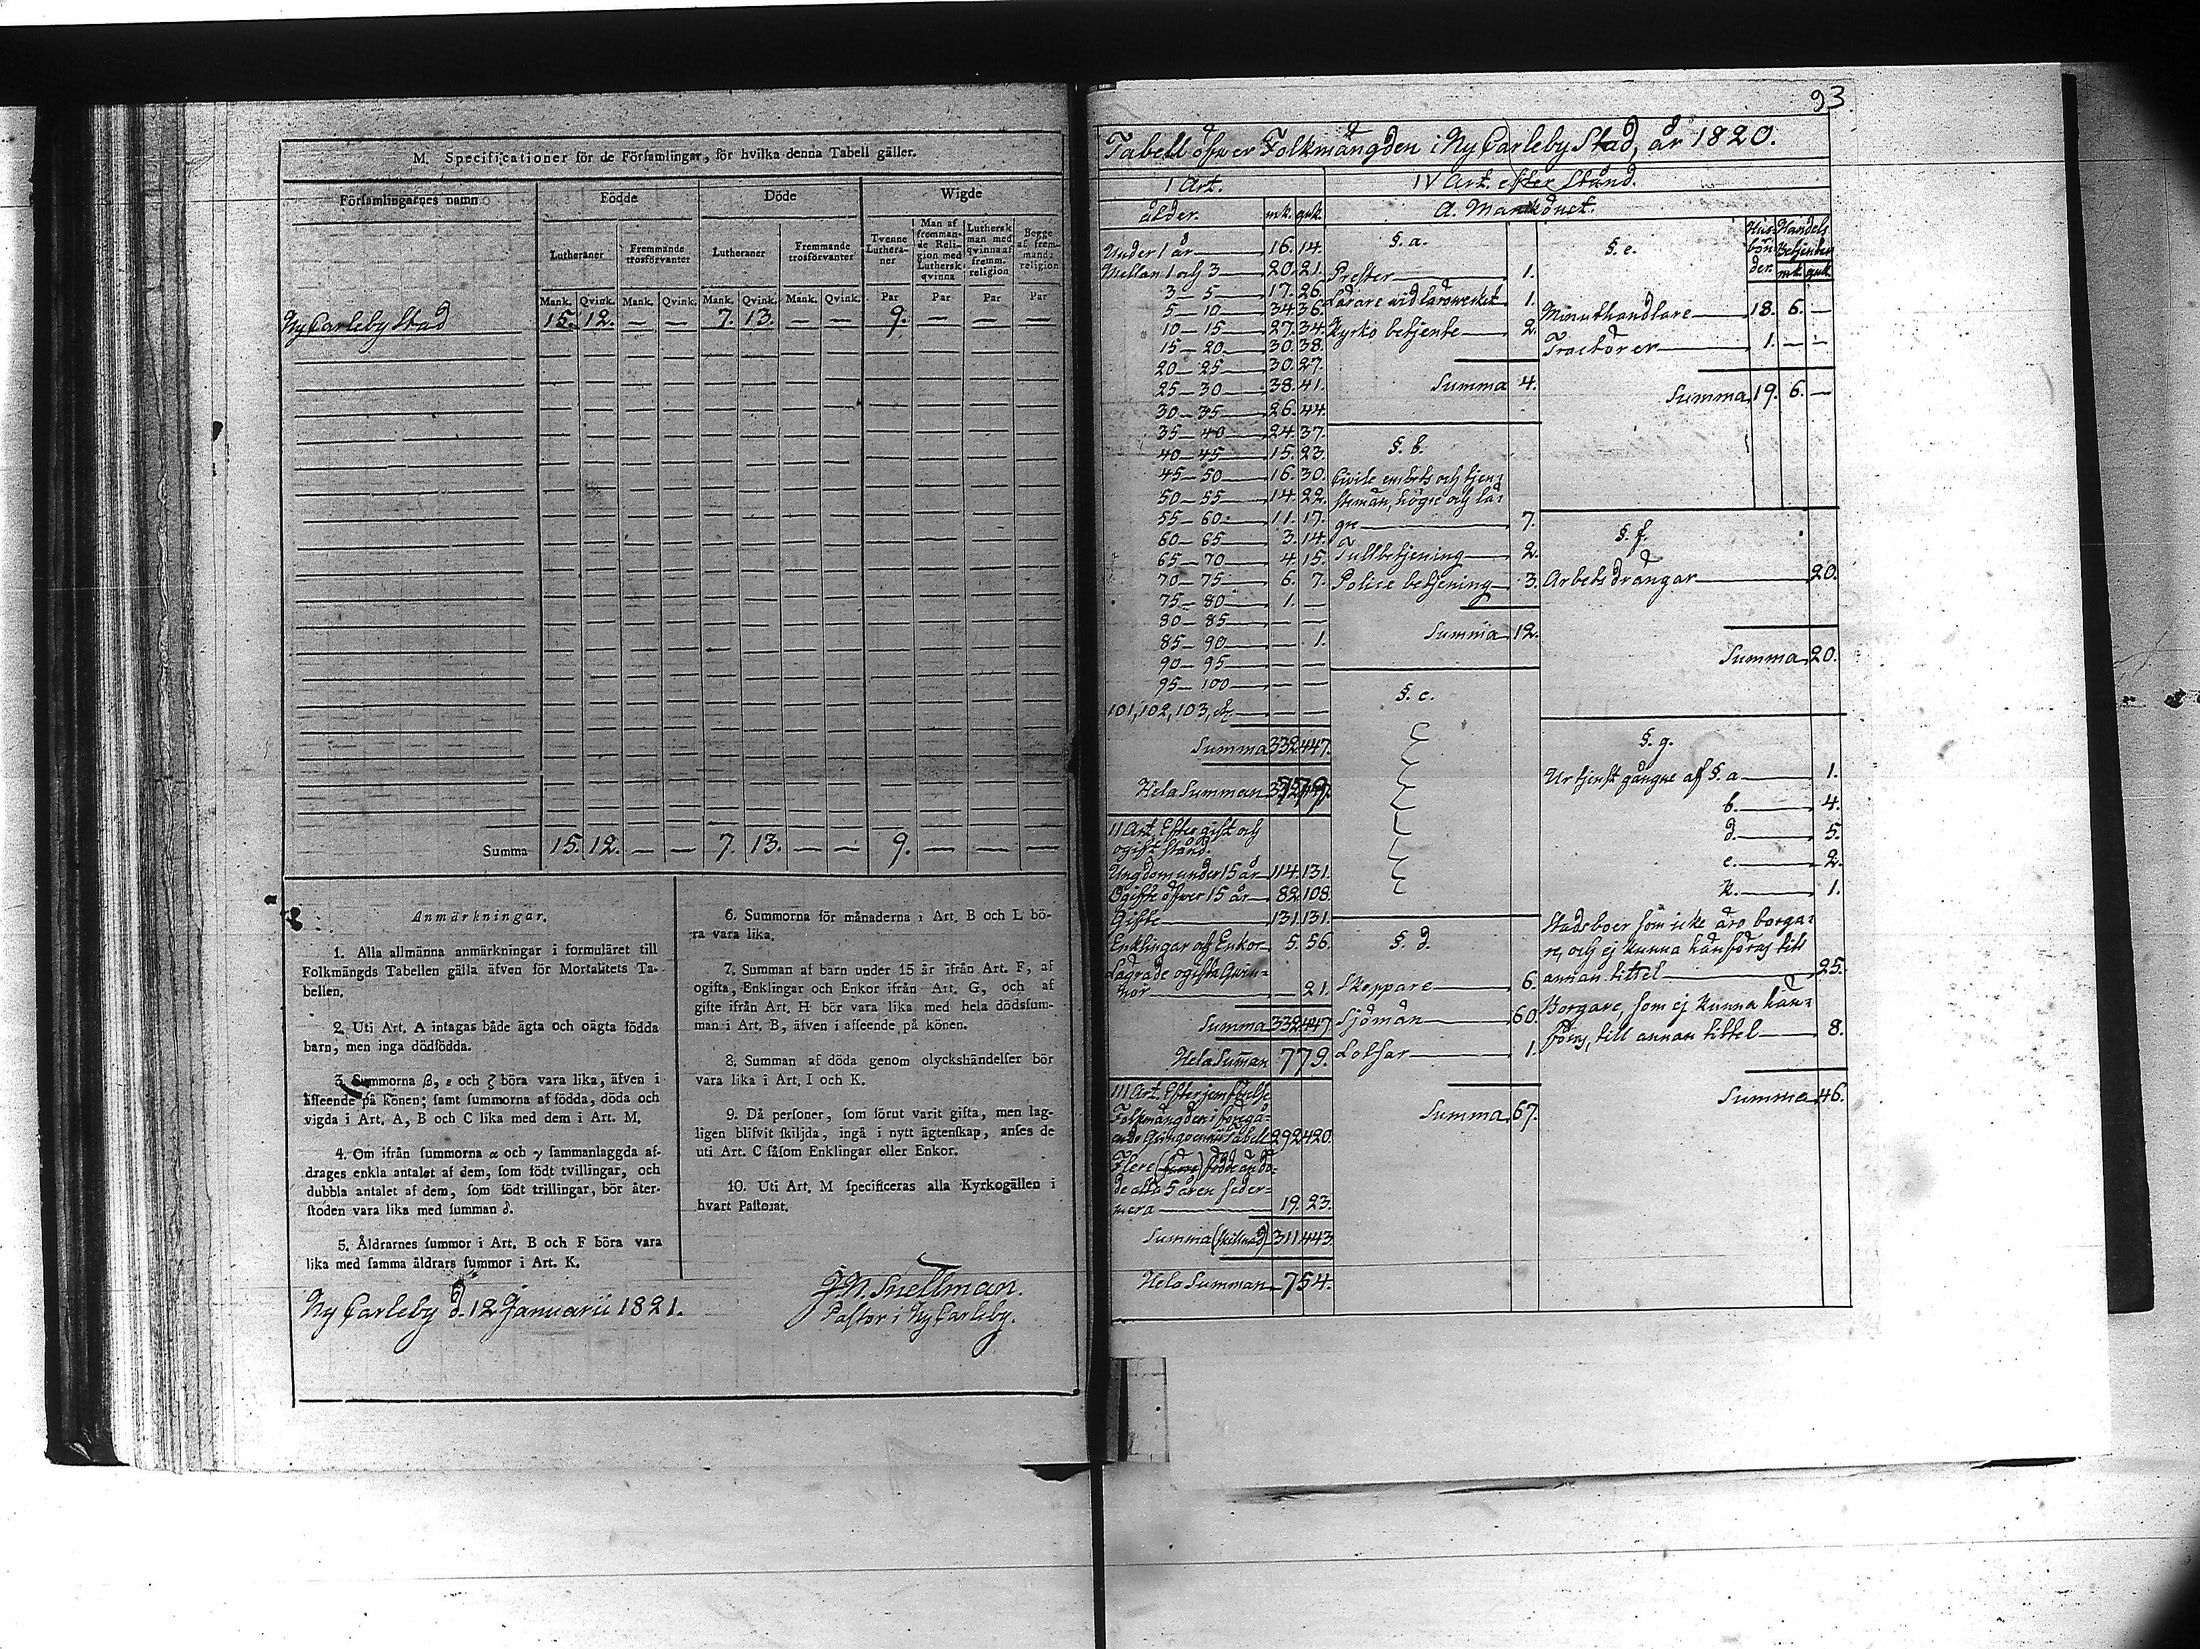 M. Specificationer för de Församlingar, för hvilka denna Tabell gäller.
Församlingarnes namn Födde Döde Wigde
Lutheraner Fremmande trosförvanter Lutheraner Fremmande trosförvanter Tvenne Lutheraner Man af fremmande Religion med Luthersk qvinna Luthersk man med qvinna af fremm. religion Begge af fremmand: religion
Mank. Qvink. Mank. Qvink. Mank. Qvink. Mank. Qvink. Par Par Par Par
Ny Carleby Stad 15. 12. — — 7. 13. — — 9. — — —
Summa 15. 12. — — 7. 13. — — 9. — — —
Anmärkningar.
1. Alla allmänna anmärkningar i formuläret till
Folkmängds Tabellen gälla äfven för Mortalitets Ta-
bellen.
2. Uti Art. A intagas både ägta och oägta födda
barn, men inga dödfödda.
3. Summorna β, ε och ζ böra vara lika, äfven i
afseende på könen; samt summorna af födda, döda och
vigda i Art. A, B och C lika med dem i Art. M.
4. Om ifrån summorna α och γ sammanlaggda af-
drages enkla antalet af dem, som födt tvillingar, och
dubbla antalet af dem, som födt trillingar, bör åter-
stoden vara lika med summan δ.
5. Åldrarnes summor i Art. B och F böra vara
lika med samma åldrars summor i Art. K.
6. Summorna för månaderna i Art. B och L bö-
ra vara lika.
7. Summan af barn under 15 år ifrån Art. F, af
ogifta, Enklingar och Enkor ifrån Art. G, och af
gifte ifrån Art. H bör vara lika med hela dödssum-
man i Art. B, äfven i afseende på könen.
8. Summan af döda genom olyckshändelser bör
vara lika i Art. I och K.
9. Då personer, som förut varit gifta, men lag-
ligen blifvit skiljda, ingå i nytt ägtenskap, anses de
uti Art. C såsom Enklingar eller Enkor.
10. Uti Art. M specificeras alla Kyrkogällen i
hvart Pastorat.
Ny Carleby d. 12 Januarii 1821.
J. N. Snellman.
Pastor i Ny Carleby.
93.
Tabell öfwer Folkmängden i Ny Carleby Stad, år 1820.
I Art.
ålder. mk. quk.
Under 1 år 16. 14.
Mellan 1 och 3 20. 21.
3—5 17. 26.
5—10 34. 36.
10—15 27. 34.
15—20 30. 38.
20—25 30. 27.
25—30 38. 41.
30—35 26. 44.
35—40 24. 37.
40—45 15. 23.
45—50 16. 30.
50—55 14. 22.
55—60 11. 17.
60—65 3. 14.
65—70 4. 15.
70—75 6. 7.
75—80 1. —
80—85 — —
85—90 — 1.
90—95 — —
95—100 — —
101, 102, 103, etc — —
Summa 332 447.
Hela Summan 779.
II Art. Efter gift och
ogift stånd.
Ungdom under 15 år 114. 131.
Ogifte öfwer 15 år 82. 108.
Gifte 131. 131.
Enklingar och Enkor 5. 56.
Lägrade ogifta Qwin-
nor — 21.
Summa 332 447.
Hela Summan 779.
III Art. Efter jemförelse
Folkmängden i föregå-
ende Quinquennii Tabell 292 420.
Flere födde än dö-
de alla 5 åren seder-
mera 19. 23.
Summa (skillnad) 311 443.
Hela Summan 754.
IV Art. efter Stånd.
A. Mankönet.
§. a.
Prester 1.
Lärare vid lärowerket 1.
Kyrko betjente 2.
Summa 4.
§. b.
Civile embets och tjen-
stemän, högre och läg-
re 7.
Tullbetjening 2.
Police betjening 3.
Summa 12.
§. c.
§. d.
Skeppare 6.
Sjömän 60.
Lotsar 1.
Summa 67.
§. e. Husbönder. Handels Betjenter mk. quk.
Minuthandlare 18. 6. —
Tracteurer 1. — —
Summa 19. 6. —
§. f.
Arbetsdrängar 20.
Summa 20.
§. g.
Ur tjenst gångne af §. a 1.
b. 4.
d. 5.
e. 2.
k. 1.
Stadsboer som icke äro borga-
re, och ej kunna hänföras till
annan tittel 25.
Borgare, som ej kunna hän-
föras, till annan tittel 8.
Summa 46.